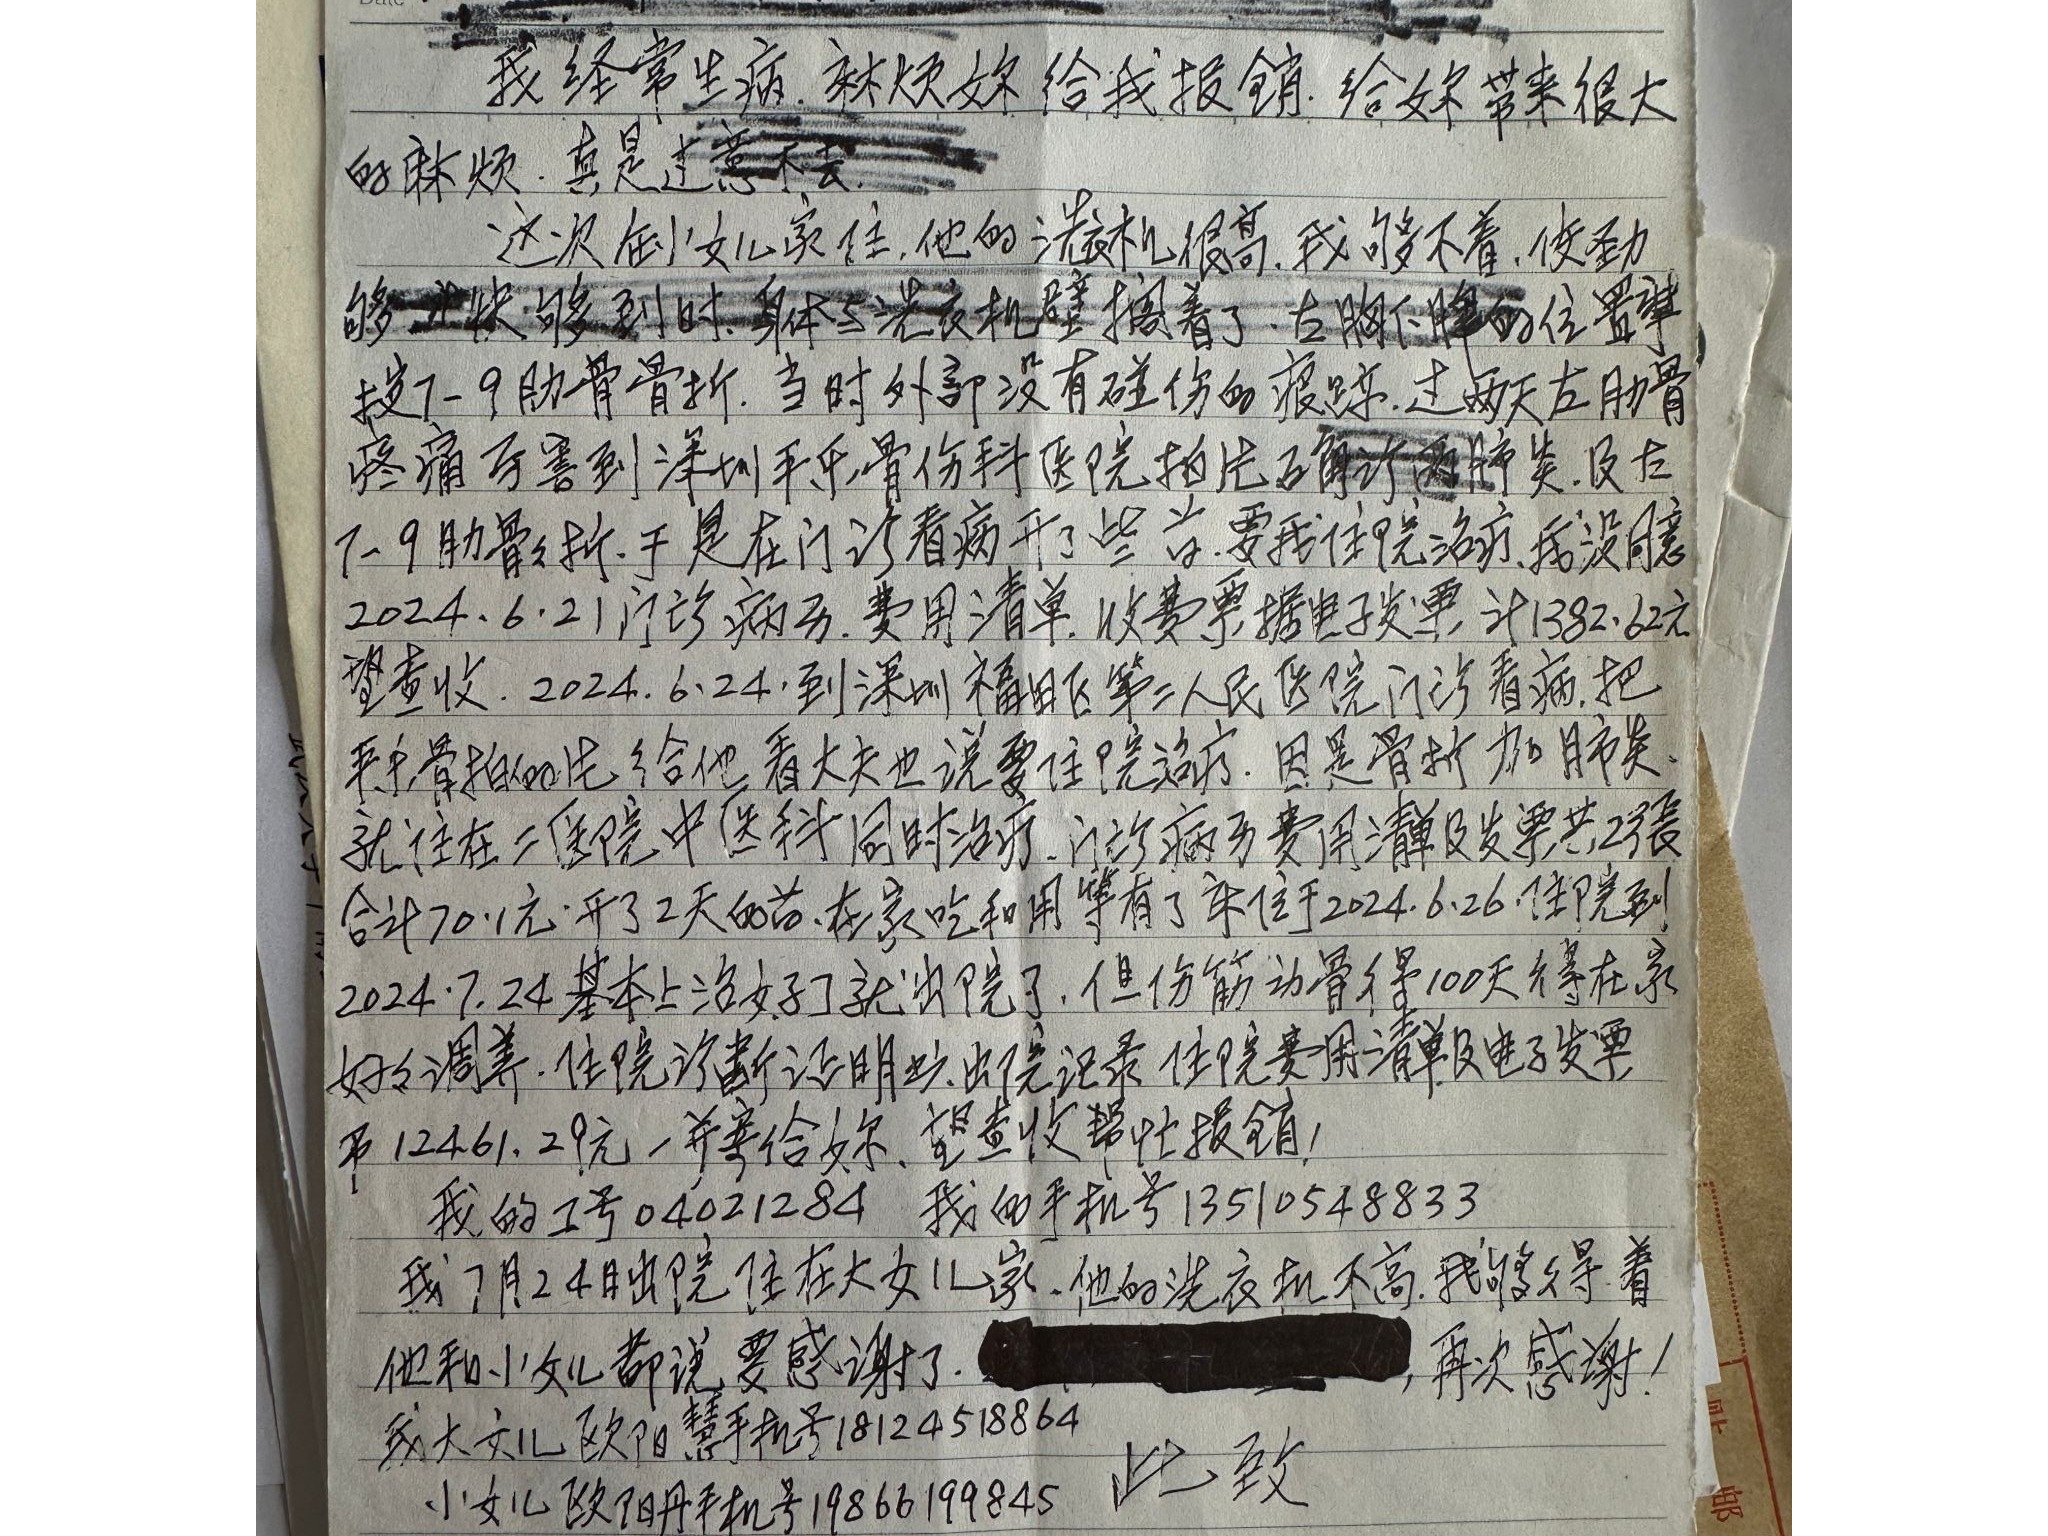 Date
我经常生病.麻烦妳给我报销.给妳带来很大
的麻烦.真是过意不去.
这次在小女儿家住.他的洗衣机很高.我够不着.使劲
够 快够到时.身体与洗衣机壁搁着了.左胸下 的位置
7-9肋骨骨折.当时外部没有碰伤的痕迹.过两天左肋骨
疼痛厉害到深圳平乐骨伤科医院拍片石角诊两肺炎.及左
7-9肋骨骨折.于是在门诊看病开了些药.要我住院治疗.我没同意
2024.6.21门诊病历.费用清单.收费票据电子发票,计1382.62元
望查收.2024.6.24.到深圳福田区第二人民医院门诊看病.把
平乐骨拍的片给他看大夫也说要住院治疗.因是骨折加肺炎.
就住在二医院中医科同时治疗.门诊病历费用清单及发票共23张
合计70.1元.开了2天的药.在家吃和用等有了床位于2024.6.26.住院到
2024.7.24基本上治好了就出院了.但伤筋动骨得100天得在家
好々调养.住院诊断证明 .出院记录 住院费用清单及电子发票
币12461.29元一并寄给妳.望查收帮忙报销!
我的工号04021284 我的手机号13510548833
我7月24日出院住在大女儿家.他的洗衣机不高.我够得着
他和小女儿都说要感谢了. ,再次感谢!
我大女儿欧阳慧手机号18124518864
小女儿欧阳丹手机号19866199845 此致
票